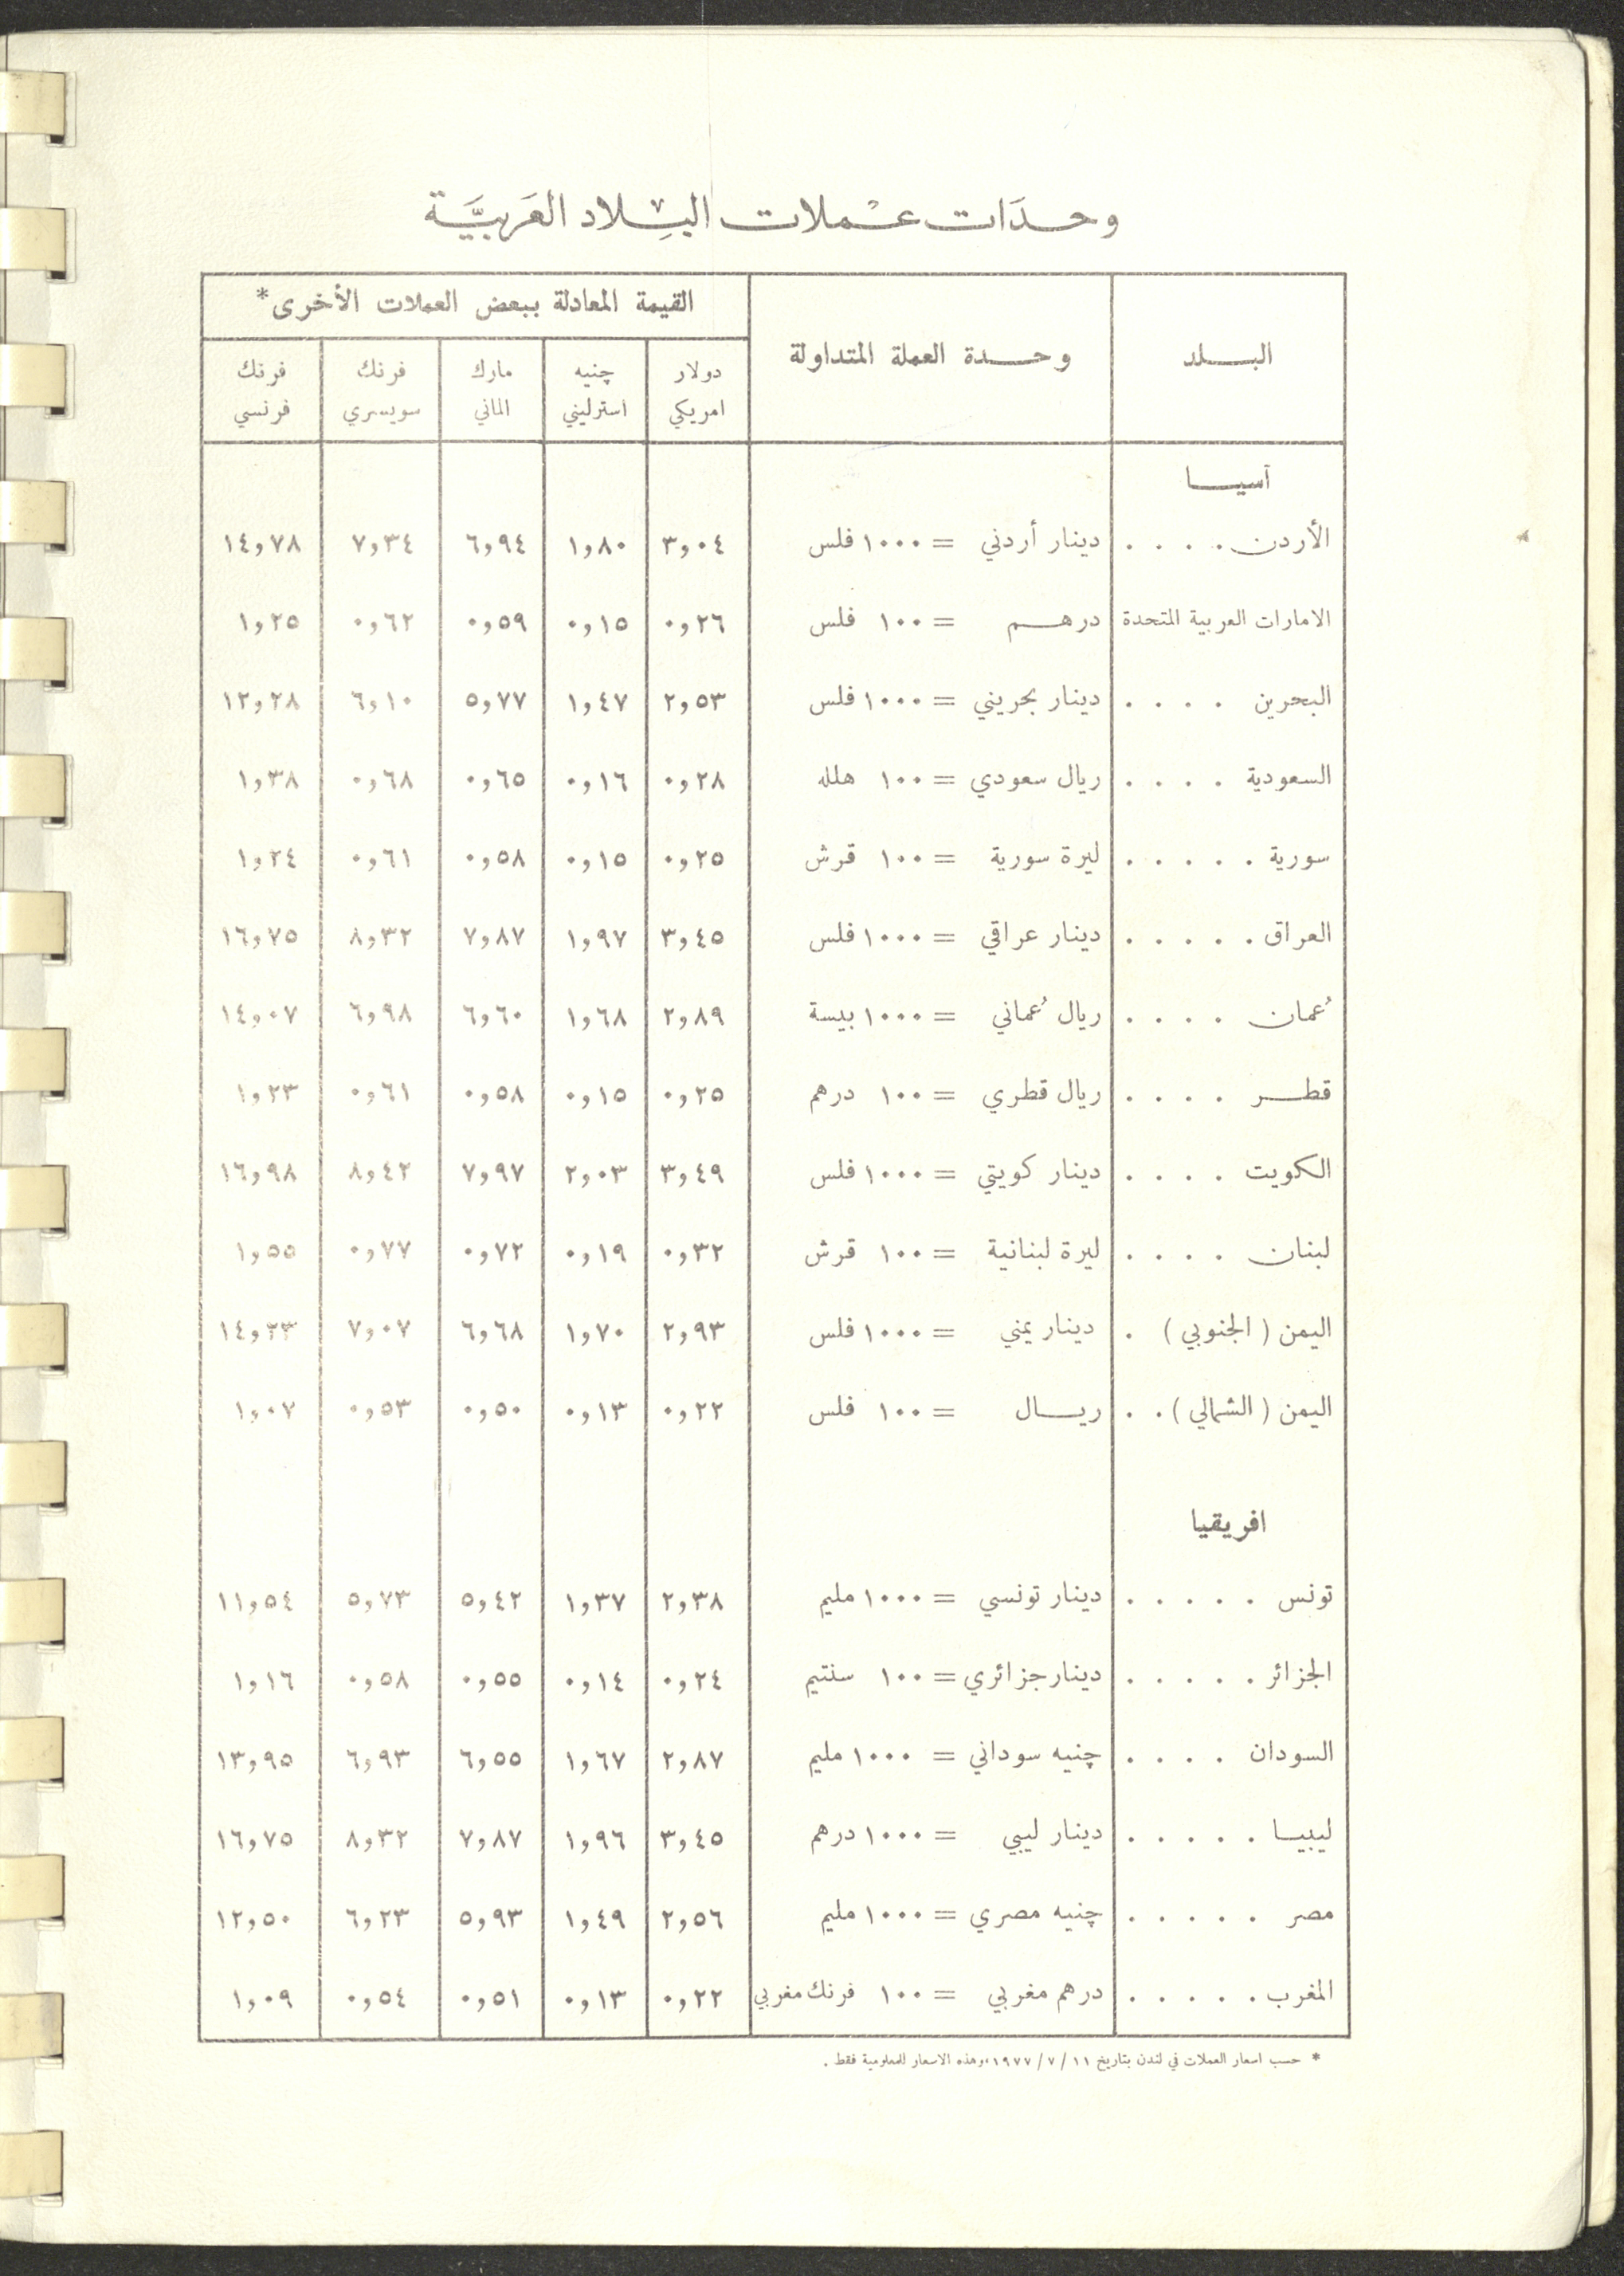 وحدَات عـْملات البِلاد العَربيَّة
القيمة المعادلة ببعض العملات الأخرى*
البـــلد وحـــدة العملة المتداولة دولار امريكي چنيه استرليني مارك الماني فرنك سويسري فرنك فرنسي
آسيــا
الأردن . . . . دينار أردني = ١٠٠٠ فلس ٣,٠٤ ١,٨٠ ٦,٩٤ ٧,٣٤ ١٤,٧٨
الامارات العربية المتحدة درهــم = ١٠٠ فلس ٠,٢٦ ٠,١٥ ٠,٥٩ ٠,٦٢ ١,٢٥
البحرين . . . . دينار بحريني = ١٠٠٠ فلس ٢,٥٣ ١,٤٧ ٥,٧٧ ٦,١٠ ١٢,٢٨
السعودية . . . . ريال سعودي = ١٠٠ هلله ٠,٢٨ ٠,١٦ ٠,٦٥ ٠,٦٨ ١,٣٨
سورية . . . . . ليرة سورية = ١٠٠ قرش ٠,٢٥ ٠,١٥ ٠,٥٨ ٠,٦١ ١,٢٤
العراق . . . . . دينار عراقي = ١٠٠٠ فلس ٣,٤٥ ١,٩٧ ٧,٨٧ ٨,٣٢ ١٦,٧٥
عُمان . . . . ريال عُماني = ١٠٠٠ بيسة ٢,٨٩ ١,٦٨ ٦,٦٠ ٦,٩٨ ١٤,٠٧
قطــر . . . . ريال قطري = ١٠٠ درهم ٠,٢٥ ٠,١٥ ٠,٥٨ ٠,٦١ ١,٢٣
الكويت . . . . دينار كويتي = ١٠٠٠ فلس ٣,٤٩ ٢,٠٣ ٧,٩٧ ٨,٤٢ ١٦,٩٨
لبنان . . . . ليرة لبنانية = ١٠٠ قرش ٠,٣٢ ٠,١٩ ٠,٧٢ ٠,٧٧ ١,٥٥
اليمن ( الجنوبي ) . دينار يمني = ١٠٠٠ فلس ٢,٩٣ ١,٧٠ ٦,٦٨ ٧,٠٧ ١٤,٢٣
اليمن ( الشمالي ) . . ريــال = ١٠٠ فلس ٠,٢٢ ٠,١٣ ٠,٥٠ ٠,٥٣ ١,٠٧
افريقيا
تونس . . . . . دينار تونسي = ١٠٠٠ مليم ٢,٣٨ ١,٣٧ ٥,٤٢ ٥,٧٣ ١١,٥٤
الجزائر . . . . . دينار جزائري = ١٠٠ سنتيم ٠,٢٤ ٠,١٤ ٠,٥٥ ٠,٥٨ ١,١٦
السودان . . . . چنيه سوداني = ١٠٠٠ مليم ٢,٨٧ ١,٦٧ ٦,٥٥ ٦,٩٣ ١٣,٩٥
ليبيــا . . . . . دينار ليبي = ١٠٠٠ درهم ٣,٤٥ ١,٩٦ ٧,٨٧ ٨,٣٢ ١٦,٧٥
مصر . . . . . چنيه مصري = ١٠٠٠ مليم ٢,٥٦ ١,٤٩ ٥,٩٣ ٦,٢٣ ١٢,٥٠
المغرب . . . . . درهم مغربي = ١٠٠ فرنك مغربي ٠,٢٢ ٠,١٣ ٠,٥١ ٠,٥٤ ١,٠٩
* حسب اسعار العملات في لندن بتاريخ ١١ / ٧ / ١٩٧٧، وهذه الاسعار للمعلومية فقط .